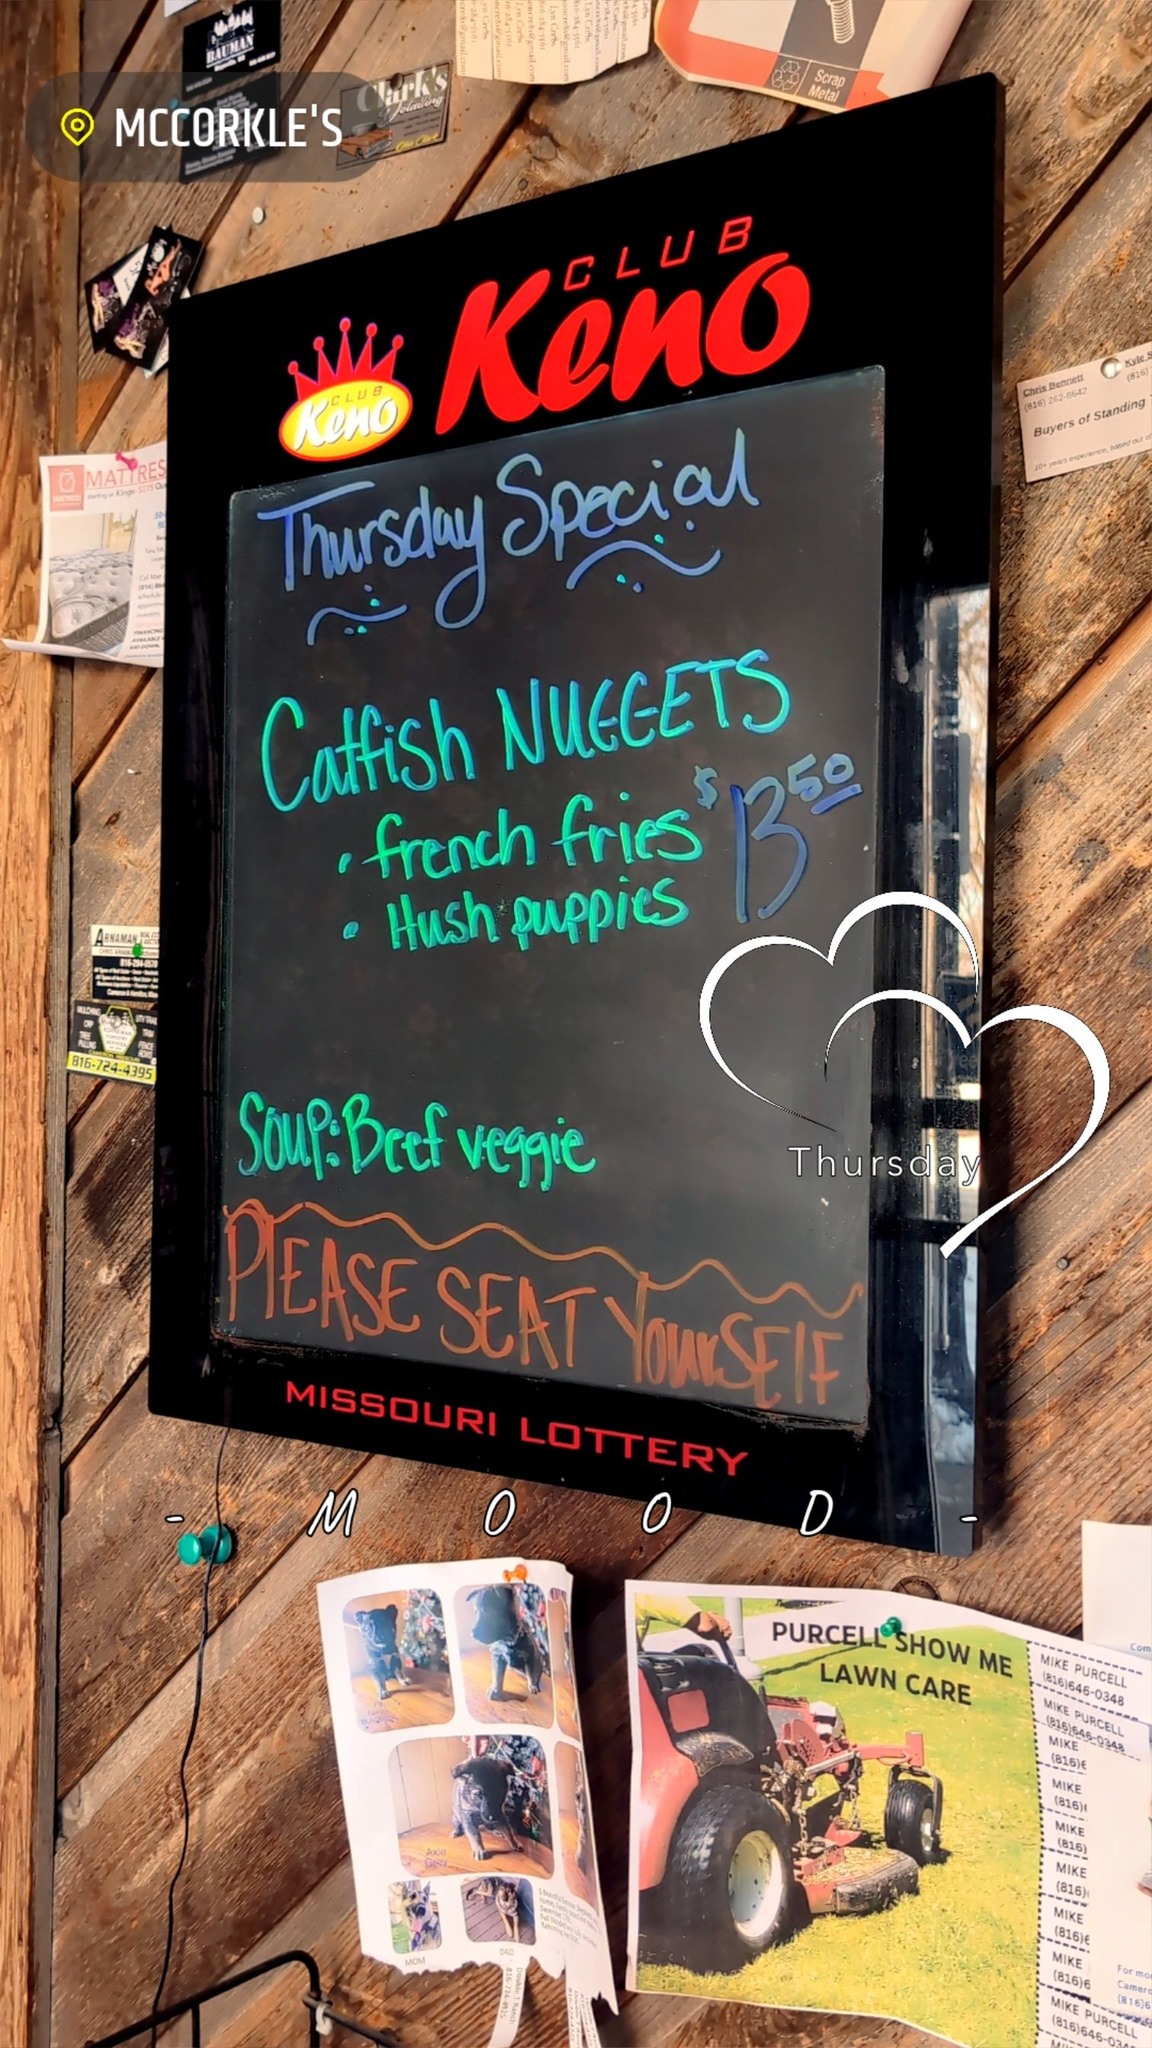 BAUMAN
Clark's
Scrap
Metal
MCCORKLE'S
CLUB
Keno
CLUB
Keno
Chris Bennett
(816) 262-6642
Buyers of Standing
MATTRES
Thursday Special
Catfish NUGGETS
• french fries $13.50
• Hush puppies
ARNAMAN
816-724-4395
Soup: Beef veggie
Thursday
PLEASE SEAT YourSELF
MISSOURI LOTTERY
- M O O D -
PURCELL SHOW ME
LAWN CARE
MIKE PURCELL
(816)646-0348
MIKE PURCELL
(816)646-0348
MIKE
(816)6
MIKE
(816)
MIKE
(816)
MIKE
(816)
MIKE
(816)6
MIKE
(816)6
MIKE PURCELL
(816)646-034
MOM
DAD